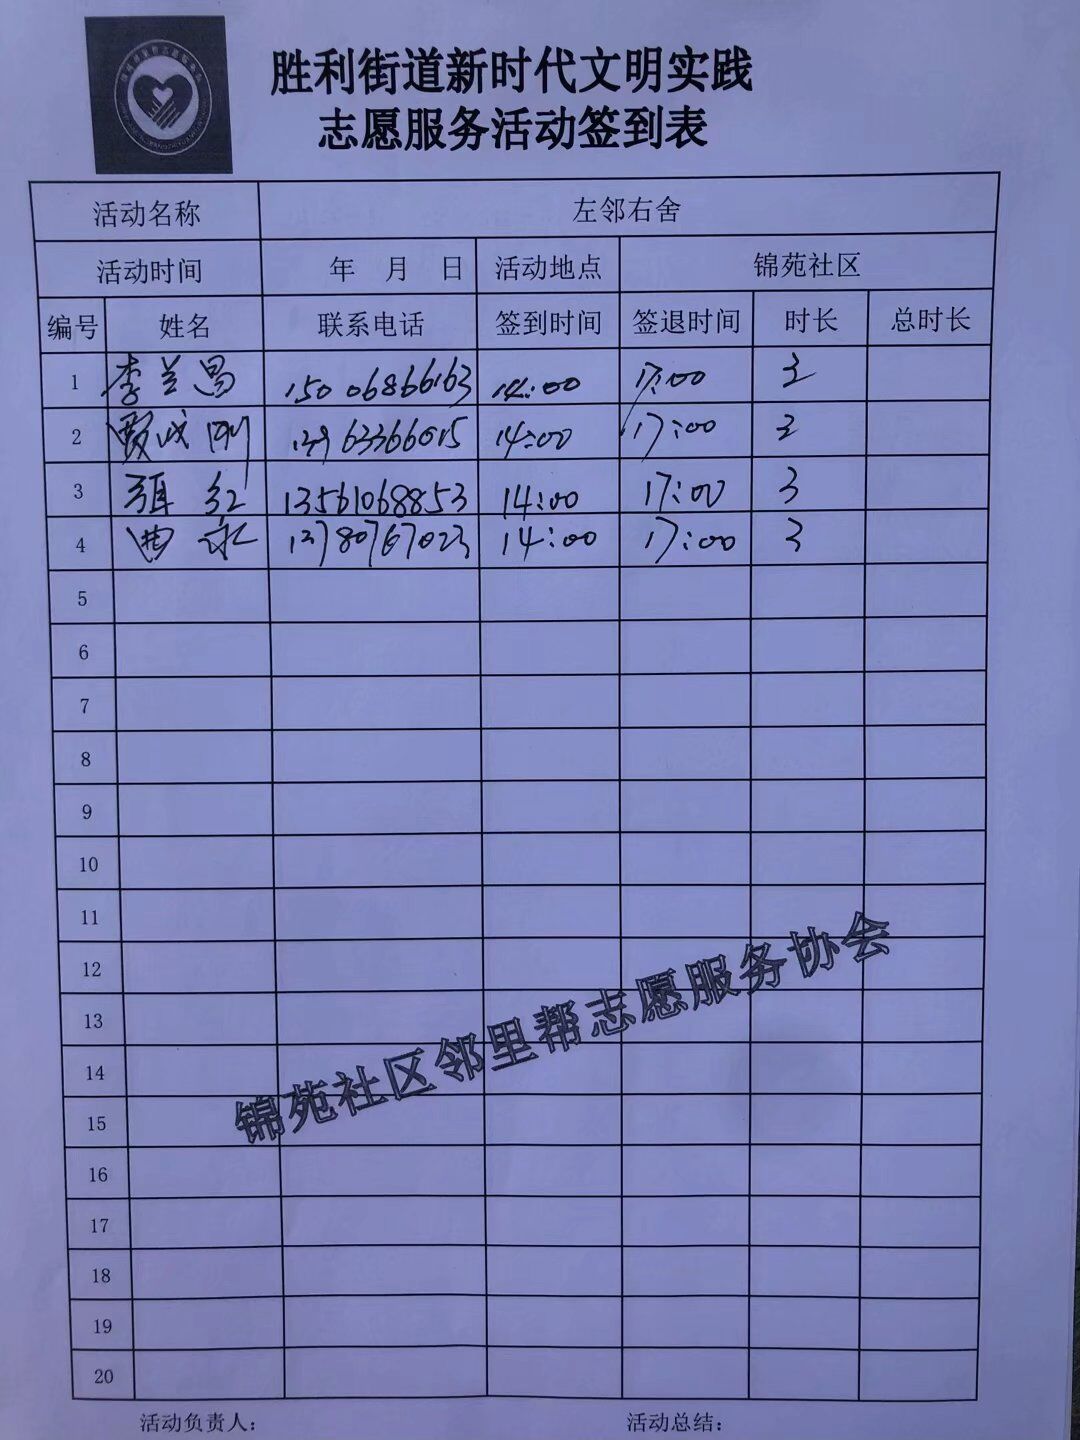 胜利街道新时代文明实践
志愿服务活动签到表
活动名称 左邻右舍
活动时间 年 月 日 活动地点 锦苑社区
编号 姓名 联系电话 签到时间 签退时间 时长 总时长
1 李兰昌 15006866163 14:00 17:00 3
2 贾成刚 14:00 17:00 3
3 张红 13561068853 14:00 17:00 3
4 曲永 13780767023 14:00 17:00 3
5
6
7
8
9
10
11
12
13
14
15
16
17
18
19
20
锦苑社区邻里帮志愿服务协会
活动负责人: 活动总结: